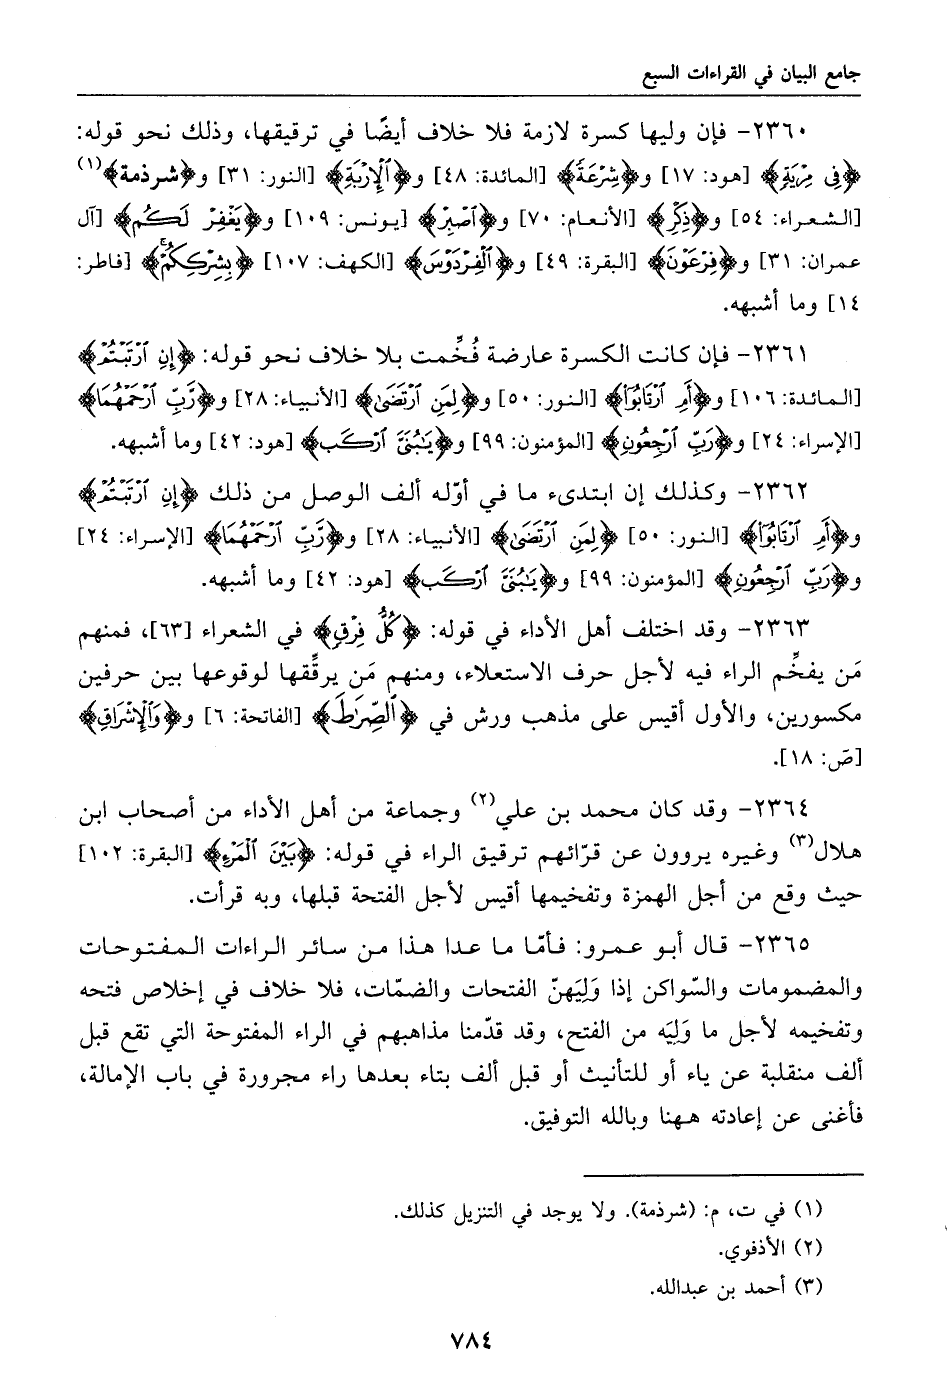 جامع البيان في القراءات السبع
٢٣٦٠- فإن وليها كسرة لازمة فلا خلاف أيضًا في ترقيقها، وذلك نحو قوله:
﴿فِى مِرْيَةٍ﴾ [هود: ١٧] و﴿شِرْعَةً﴾ [المائدة: ٤٨] و﴿ٱلْإِرْبَةِ﴾ [النور: ٣١] و﴿شرذمة﴾(١)
[الشعراء: ٥٤] و﴿ذِكْرِ﴾ [الأنعام: ٧٠] و﴿ٱصْبِرْ﴾ [يونس: ١٠٩] و﴿يَغْفِرْ لَكُم﴾ [آل
عمران: ٣١] و﴿فِرْعَوْنَ﴾ [البقرة: ٤٩] و﴿ٱلْفِرْدَوْسِ﴾ [الكهف: ١٠٧] ﴿بِشِرْكِكُمْ﴾ [فاطر:
١٤] وما أشبهه.
٢٣٦١- فإن كانت الكسرة عارضة فُخِّمت بلا خلاف نحو قوله: ﴿إِنِ ٱرْتَبْتُمْ﴾
[المائدة: ١٠٦] و﴿أَمِ ٱرْتَابُوٓا۟﴾ [النور: ٥٠] و﴿لِمَنِ ٱرْتَضَىٰ﴾ [الأنبياء: ٢٨] و﴿رَّبِّ ٱرْحَمْهُمَا﴾
[الإسراء: ٢٤] و﴿رَبِّ ٱرْجِعُونِ﴾ [المؤمنون: ٩٩] و﴿يَٰبُنَىَّ ٱرْكَب﴾ [هود: ٤٢] وما أشبهه.
٢٣٦٢- وكذلك إن ابتدىء ما في أوّله ألف الوصل من ذلك ﴿إِنِ ٱرْتَبْتُمْ﴾
و﴿أَمِ ٱرْتَابُوٓا۟﴾ [النور: ٥٠] ﴿لِمَنِ ٱرْتَضَىٰ﴾ [الأنبياء: ٢٨] و﴿رَّبِّ ٱرْحَمْهُمَا﴾ [الإسراء: ٢٤]
و﴿رَبِّ ٱرْجِعُونِ﴾ [المؤمنون: ٩٩] و﴿يَٰبُنَىَّ ٱرْكَب﴾ [هود: ٤٢] وما أشبهه.
٢٣٦٣- وقد اختلف أهل الأداء في قوله: ﴿كُلُّ فِرْقٍ﴾ في الشعراء [٦٣]، فمنهم
مَن يفخِّم الراء فيه لأجل حرف الاستعلاء، ومنهم مَن يرقِّقها لوقوعها بين حرفين
مكسورين، والأول أقيس على مذهب ورش في ﴿ٱلصِّرَٰطَ﴾ [الفاتحة: ٦] و﴿وَٱلْإِشْرَاقِ﴾
[صَ: ١٨].
٢٣٦٤- وقد كان محمد بن علي(٢) وجماعة من أهل الأداء من أصحاب ابن
هلال(٣) وغيره يروون عن قرّائهم ترقيق الراء في قوله: ﴿بَيْنَ ٱلْمَرْءِ﴾ [البقرة: ١٠٢]
حيث وقع من أجل الهمزة وتفخيمها أقيس لأجل الفتحة قبلها، وبه قرأت.
٢٣٦٥- قال أبو عمرو: فأمّا ما عدا هذا من سائر الراءات المفتوحات
والمضمومات والسّواكن إذا وَلِيَهنّ الفتحات والضمّات، فلا خلاف في إخلاص فتحه
وتفخيمه لأجل ما وَلِيَه من الفتح، وقد قدّمنا مذاهبهم في الراء المفتوحة التي تقع قبل
ألف منقلبة عن ياء أو للتأنيث أو قبل ألف بتاء بعدها راء مجرورة في باب الإمالة،
فأغنى عن إعادته ههنا وبالله التوفيق.
(١) في ت، م: (شرذمة). ولا يوجد في التنزيل كذلك.
(٢) الأذفوي.
(٣) أحمد بن عبدالله.
٧٨٤